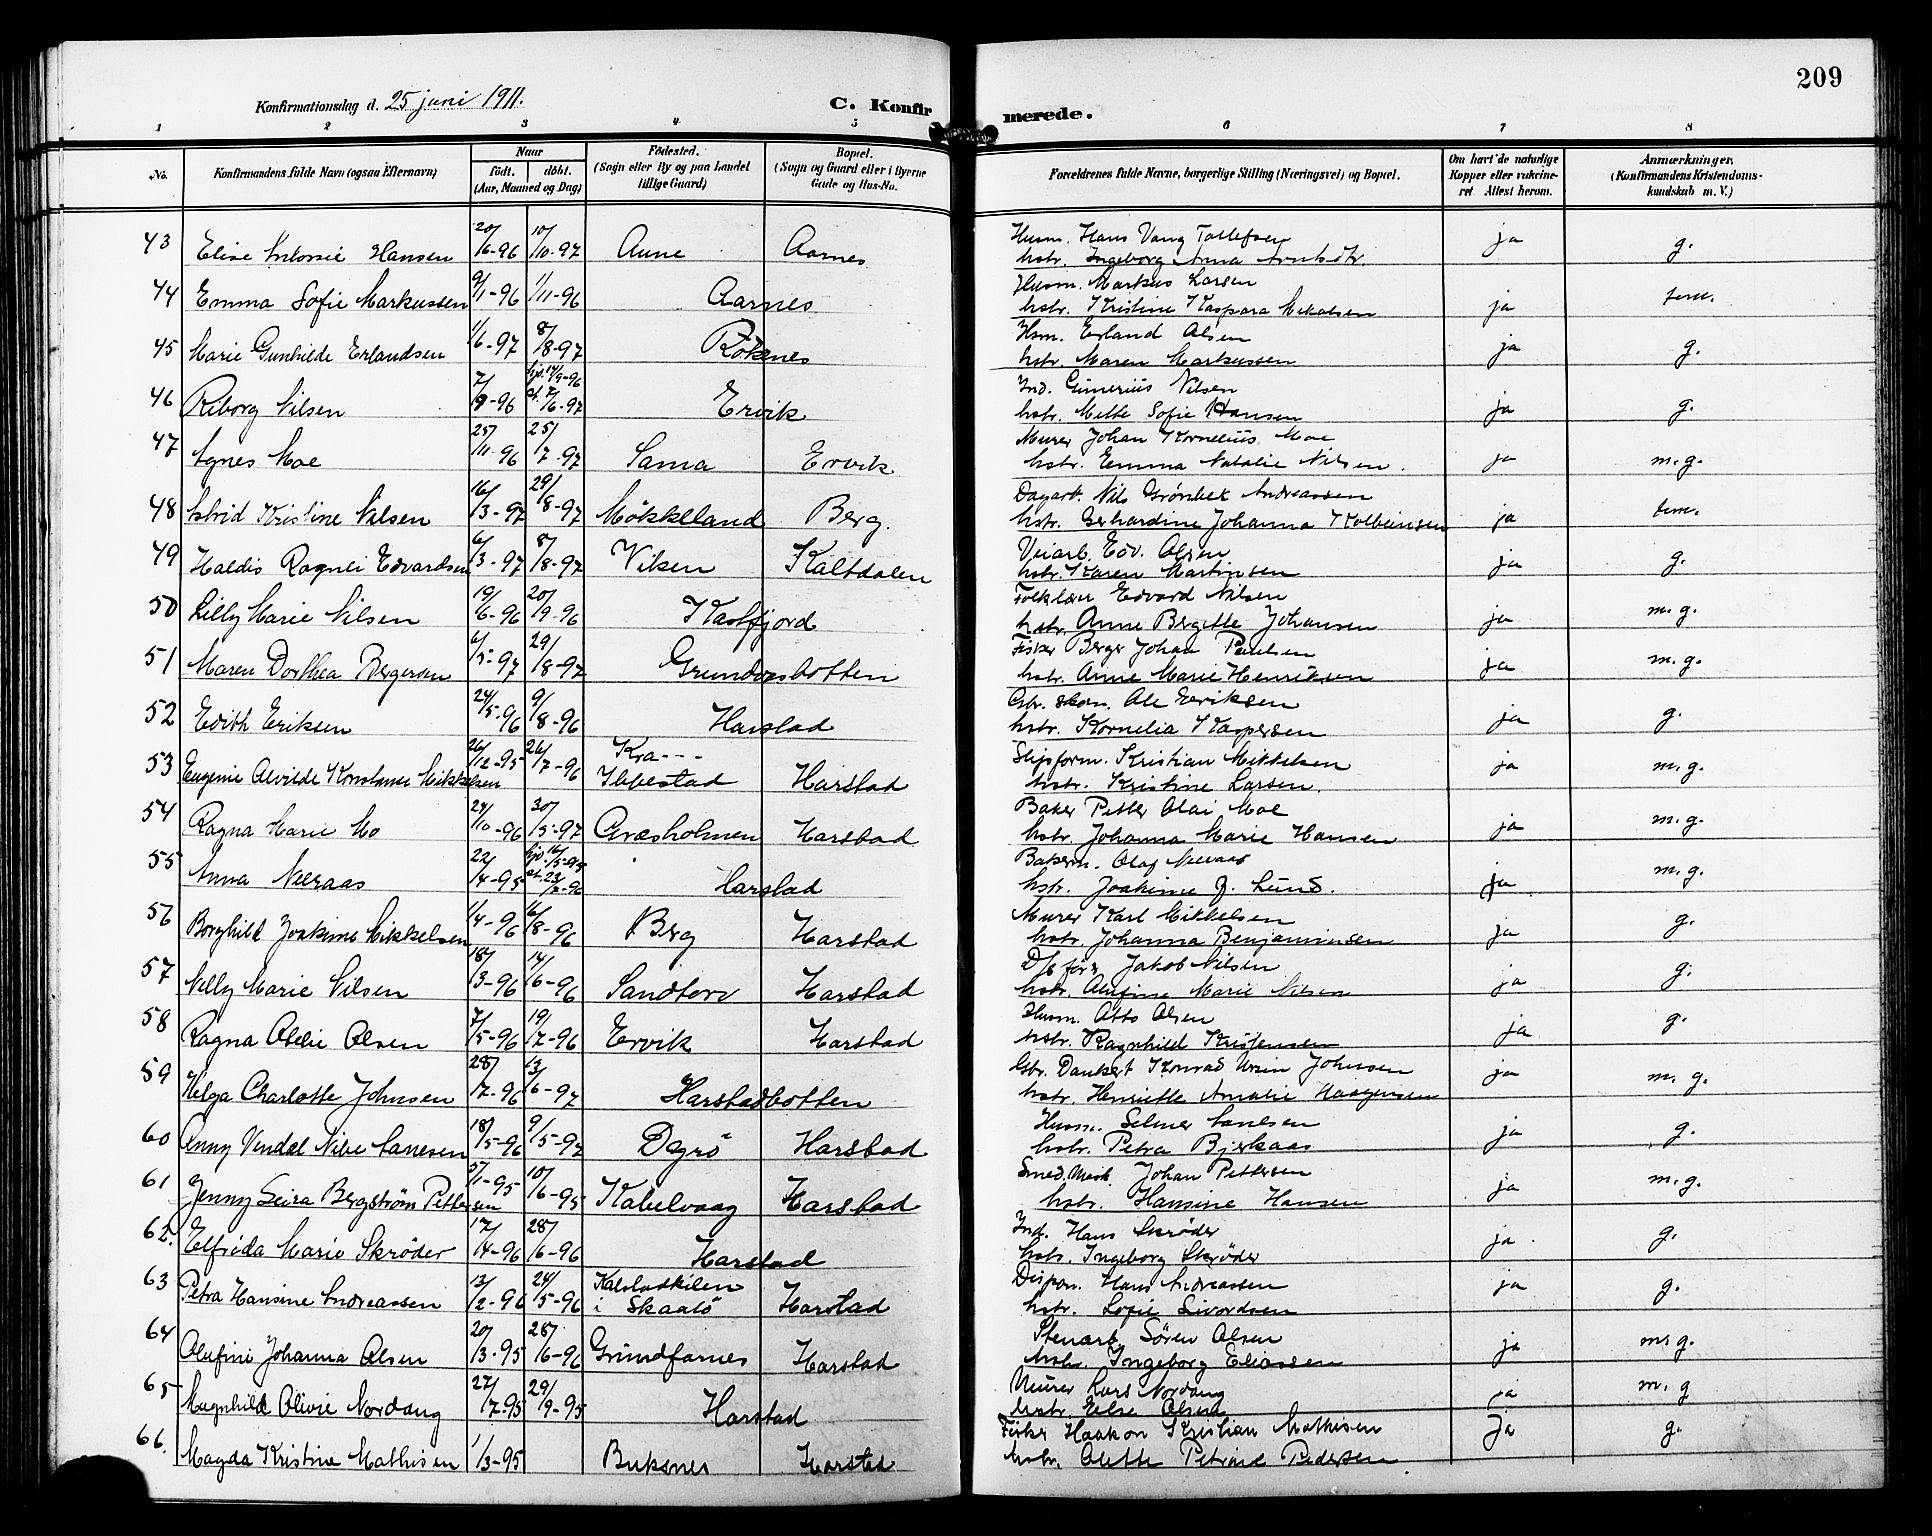 209
Konfirmationsdag d. 25 juni 1911.
C. Konfirmerede.
1 2 3 4 5 6 7 8
No. Konfirmandens fulde Navn (ogsaa Efternavn) Naar födt. döbt. (Aar, Maaned og Dag) Födested. (Sogn eller By og paa Landet tillige Gaard) Bopæl. (Sogn og Gaard eller i Byerne Gade og Hus-No. Forældrenes fulde Navne, borgerlige Stilling (Næringsvei) og Bopæl. Om havt de naturlige Kopper eller vakcineret Attest herom. Anmærkninger. (Konfirmandens Kristendomskundskab m. V.)
43 Elise Antonie Hansen 20/6-96 10/10-97 Aune Aarnes Husm. Hans Vang Tollefsen ja g.
hstr. Ingeborg Anna Arntsdtr.
44 Emma Sofie Markussen 9/11-96 1/11-96 Aarnes Husm. Markus Larsen ja tem.
hstr. Kristine Kaspara Mikalsen
45 Marie Gunhilde Erlandsen 1/6-97 8/8-97 Röknes Hsm. Erland Olsen ja g.
hstr. Maren Markussen
46 Riborg Nilsen 7/9-96 hjd. 14/9-96 st. 7/6-97 Ervik Ind. Gunerius Nilsen ja g.
hstr. Mette Sofie Hansen
47 Agnes Moe 25/11-96 25/7-97 Sama Ervik Murer Johan Kornelius Moe ja m.g.
hstr. Emma Natalie Nilsen.
48 Astrid Kristine Nilsen 16/3-97 29/8-97 Mökkelland Berg. Dagarb. Nils Grönbek Andreassen ja tem.
hstr. Gerhardine Johanna Kolbeinsen
49 Haldis Ragnli Edvardsen 6/3-97 8/8-97 Viken Kaltdalen Veiarb. Edv. Olsen ja g.
hstr. Karen Martinsen
50 Lilly Marie Nilsen 19/6-96 20/9-96 Kasfjord Folklær Edvard Nilsen ja m.g.
hstr. Anne Bergitte Johansen
51 Maren Dorthea Bergersen 6/5-97 29/8-97 Grundvasbotten Fisker Berger Johan Paulsen ja m.g.
hstr. Anne Marie Henriksen
52 Edith Eriksen 24/5-96 9/8-96 Harstad Gbr. skom. Ole Eeriksen ja g.
hstr. Kornelia Kaspersen
53 Eugenie Alvilde Konstanse Mikkelsen 26/12-95 26/7-96 Kra--- Ibbestad Harstad Slipform. Kristian Mikkelsen ja m.g.
hstr. Kristine Larsen.
54 Ragna Marie Mo 24/10-96 30/5-97 Græsholmen Harstad Baker Petter Olai Moe ja m.g.
hstr. Johanna Marie Hansen
55 Anna Nerraas 22/4-95 Harstad Bakerm. Olaf Nerraas ja m.g.
hstr. Joakime J. Lund.
56 Borghild Joakime Mikkelsen 1/4-96 16/8-96 Berg Harstad Murer Karl Mikkelsen ja g.
hstr. Johanna Benjaminsen
57 Nelly Marie Nilsen 18/3-96 14/6-96 Sandtorv Harstad D/s förer Jakob Nilsen ja g.
hstr. Olufine Marie Nilsen
58 Ragna Otelie Olsen 7/5-96 19/7-96 Ervik Harstad Husm. Otto Olsen ja g.
hstr. Ragnhild Kristensen
59 Helga Charlotte Johnsen 28/7-96 13/6-97 Harstadbotten Gbr. Dankert Konrad Ursin Johnsen ja m.g.
hstr. Henriette Amalie Haagensen
60 Anny Vendal Nibe Lanesen 18/5-96 9/5-97 Dyrö Harstad Husm. Selmer Lanesen ja g.
hstr. Petra Bjerkaas
61 Jenny Seira Bergström Pettersen 5/11-95 10/6-95 Kabelvaag Harstad Smed, Mask. Johan Pettersen ja m.g.
hstr. Hansine Hansen
62. Elfrida Marie Skröder 17/4-96 28/6-96 Harstad Ind. Hans Skröder ja. g.
hstr. Ingeborg Skröder
63 Petra Hansine Andreassen 13/2-96 24/5-96 Kalstadkilen i Skaatö Harstad Dispon. Hans Andreassen ja g.
hstr. Sofie Sivordsen
64 Olufine Johanna Olsen 20/3-95 28/6-96 Grundfarnes Harstad Stenarb. Sören Olsen ja m.g.
hstr. Ingeborg Eliassen
65 Magnhild Olivie Nordang 27/7-95 29/9-95 Harstad Murer Lars Nordang ja m.g
hstr. Else Olsen
66. Magda Kristine Mathisen 1/3-95 Buksnes Harstad Fisker Haakon Kristian Mathisen ja g.
hstr. Olette Petrine Pedersen